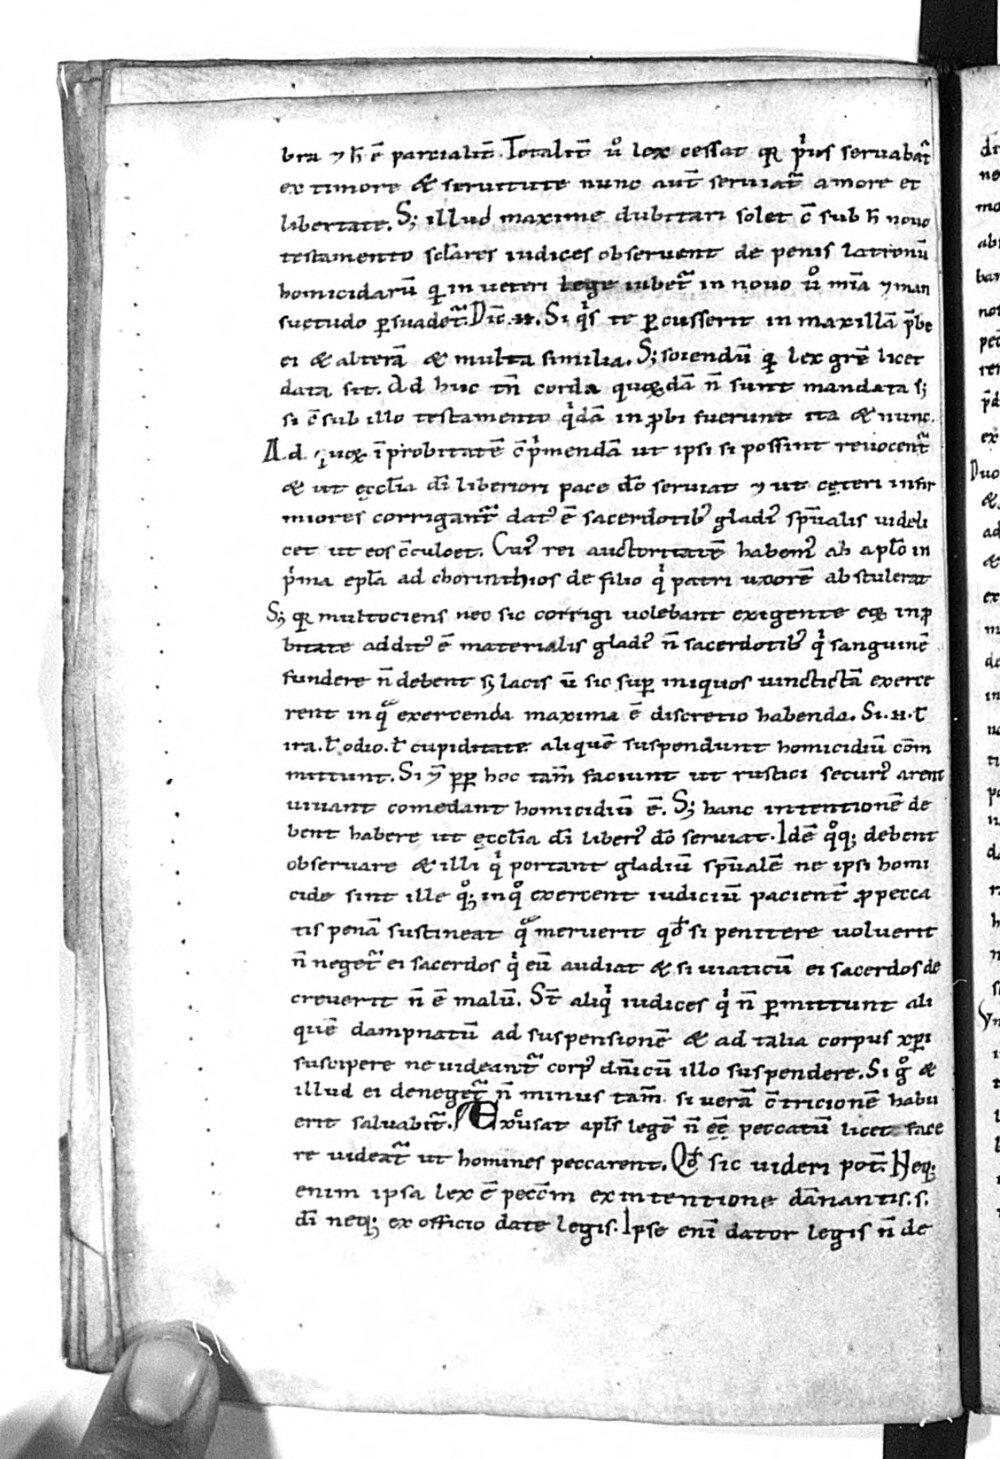 bra ⁊ h̄ ē parcialit̄. Totalit̄ ů lex cessat qꝛ pͥus seruabat᷑
ex timore & seruitute nunc aut̄ seruiat᷑ amore et
libertate. Sꝫ illud maxime dubitari solet c̄ sub h̄ nouo
testamento sclares iudices obseruent de penis latronū
homicidarū qͥ in ueteri lege iubet᷑ in nouo ů mīa ⁊ man
suetudo ꝑsuadet᷑. Dic̄. n̄. Si qͥs te ꝑcusserit in maxillā p̄be
ei & alterā & multa similia. Sꝫ sciendū qͥ lex grē licet
data sit. Ad huc tn̄ corda quoꝝdā n̄ sunt mandata sꝫ
si c̄ sub illo testamento qͥdā inꝓbi fuerunt ita & nunc.
Ad quoꝝ īprobitatē c̄pͥmendā ut ipsi si possint reuocent᷑
& ut ęcclīa dī liberiori pace dō seruiat ⁊ ut cęteri infir
miores corrigant᷑ datꝰ ē sacerdotibꝰ gladiꝰ spūalis uideli
cet ut eos c̄culcet. Cuiꝰ rei auctoritatē habemꝰ ab aplō in
pͥma eplā ad chorinthios de filio qͥ patri uxorē abstulerat
Sꝫ qꝛ multociens nec sic corrigi uolebant exigente eoꝝ inꝓ
bitate additꝰ ē materialis gladiꝰ n̄ sacerdotibꝰ qͥ sanguinē
fundere n̄ debent sꝫ laicis ū sic suꝑ iniquos uindictā exerce
rent in qͣ exercenda maxima ē discretio habenda. Si. n̄. ł
ira. ł odio. ł cupiditate aliquē suspendunt homicidiū cōm
mittunt. Si ⁊̄ ꝓꝑ hoc tam̄ faciunt ut rustici securꝰ arent
uiuant comedant homicidiū ē. Sꝫ hanc intentionē de
bent habere ut ęcclīa dī liberꝰ dō seruiat. Idē qͦqꝫ debent
obseruare & illi qͥ portant gladiū spūalē ne ipsi homi
cide sint ille qͦqꝫ in qͦ exercent iudiciū pacient̄ ꝓ pecca
tis penā sustineat qͣ meruerit qd̄ si penitere uoluerit
n̄ neget᷑ ei sacerdos qͥ eū audiat & si uiaticū ei sacerdos de
creuerit n̄ ē malū. St̄ aliqͥ iudices qͥ n̄ ꝑmittunt ali
quē dampnatū ad suspensionē & ad talia corpus xp̄i
suscipere ne uideant᷑ corpꝰ dn̄icū illo suspendere. Si gͦ &
illud ei deneget᷑ n̄ minus tam̄ si uerā c̄tricionē habu
erit saluabit᷑. Excusat apls̄ legē n̄ ēē peccatū licet face
re uideat᷑ ut homines peccarent. Qd̄ sic uideri pot̄. Neqꝫ
enim ipsa lex ē pecc̄m ex intentione dānantis. s.
dī neqꝫ ex officio date legis. Ipse eni᷑ dator legis n̄ de